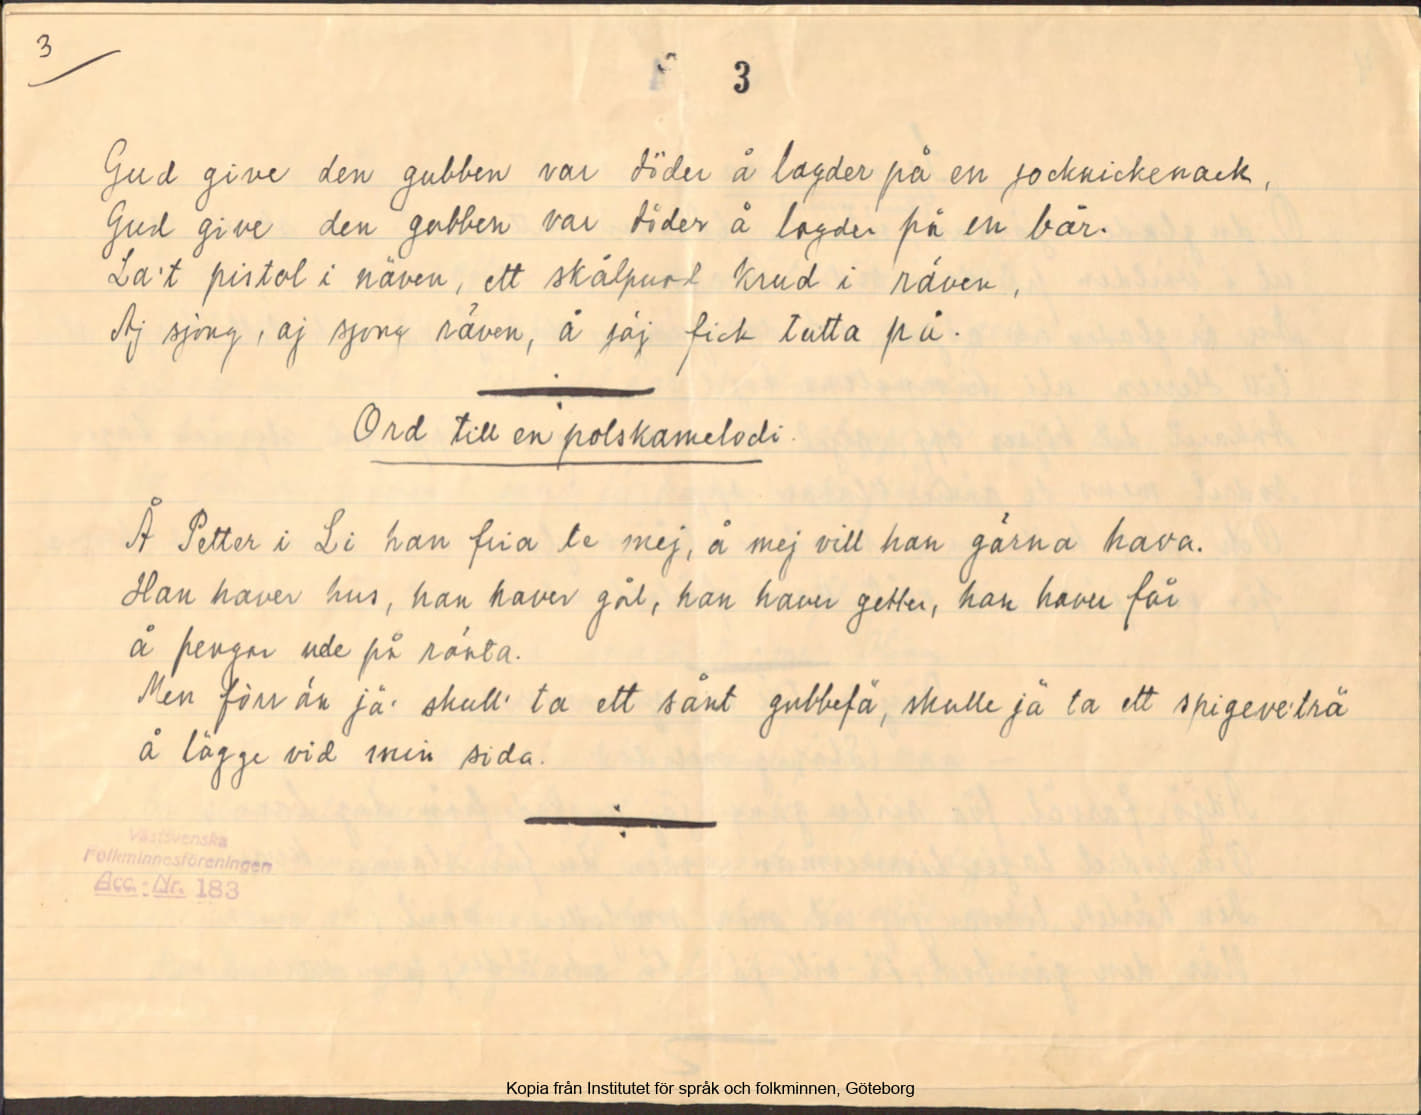 3
3
Gud give den gubben var döder å lagder på en socknickenack,
Gud give den gubben var döder å lagder på en bår.
La't pistol i näven, ett skålpund krud i räven,
Aj sjong, aj sjong räven, å jäj fick tutta på.
Ord till en polskamelodi.
Å Petter i Li han fria te mej, å mej vill han gärna hava.
Han haver hus, han haver gål, han haver getter, han haver får
å pengar ude på ränta.
Men förr än jä' skull' ta ett sånt gubbefä, skulle jä ta ett spigeve'trä
å lägge vid min sida.
Västsvenska
Folkminnesföreningen
Acc.-Nr. 183
Kopia från Institutet för språk och folkminnen, Göteborg